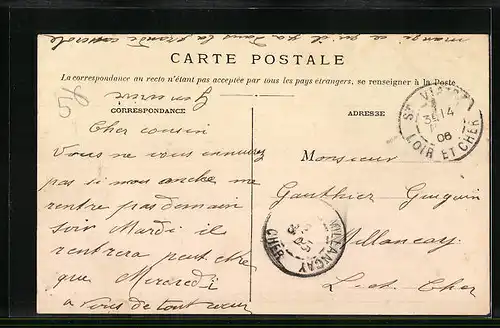 mangé ce qu'il y a dans la grande casserole
CARTE POSTALE
La correspondance au recto n'étant pas acceptée par tous les pays étrangers, se renseigner à la Poste
58
CORRESPONDANCE
ADRESSE
Cher cousin
Vous ne vous ennuirez
pas si mon oncle ne
rentre pas demain
soir Mardi il
rentrera peut etre
que Mercredi
a vous de tout cœur
Monsieur
Gauthier
Millançay
L. et Cher
ST VIATRE
14
06
LOIR ET CHER
MILLANÇAY
CHER